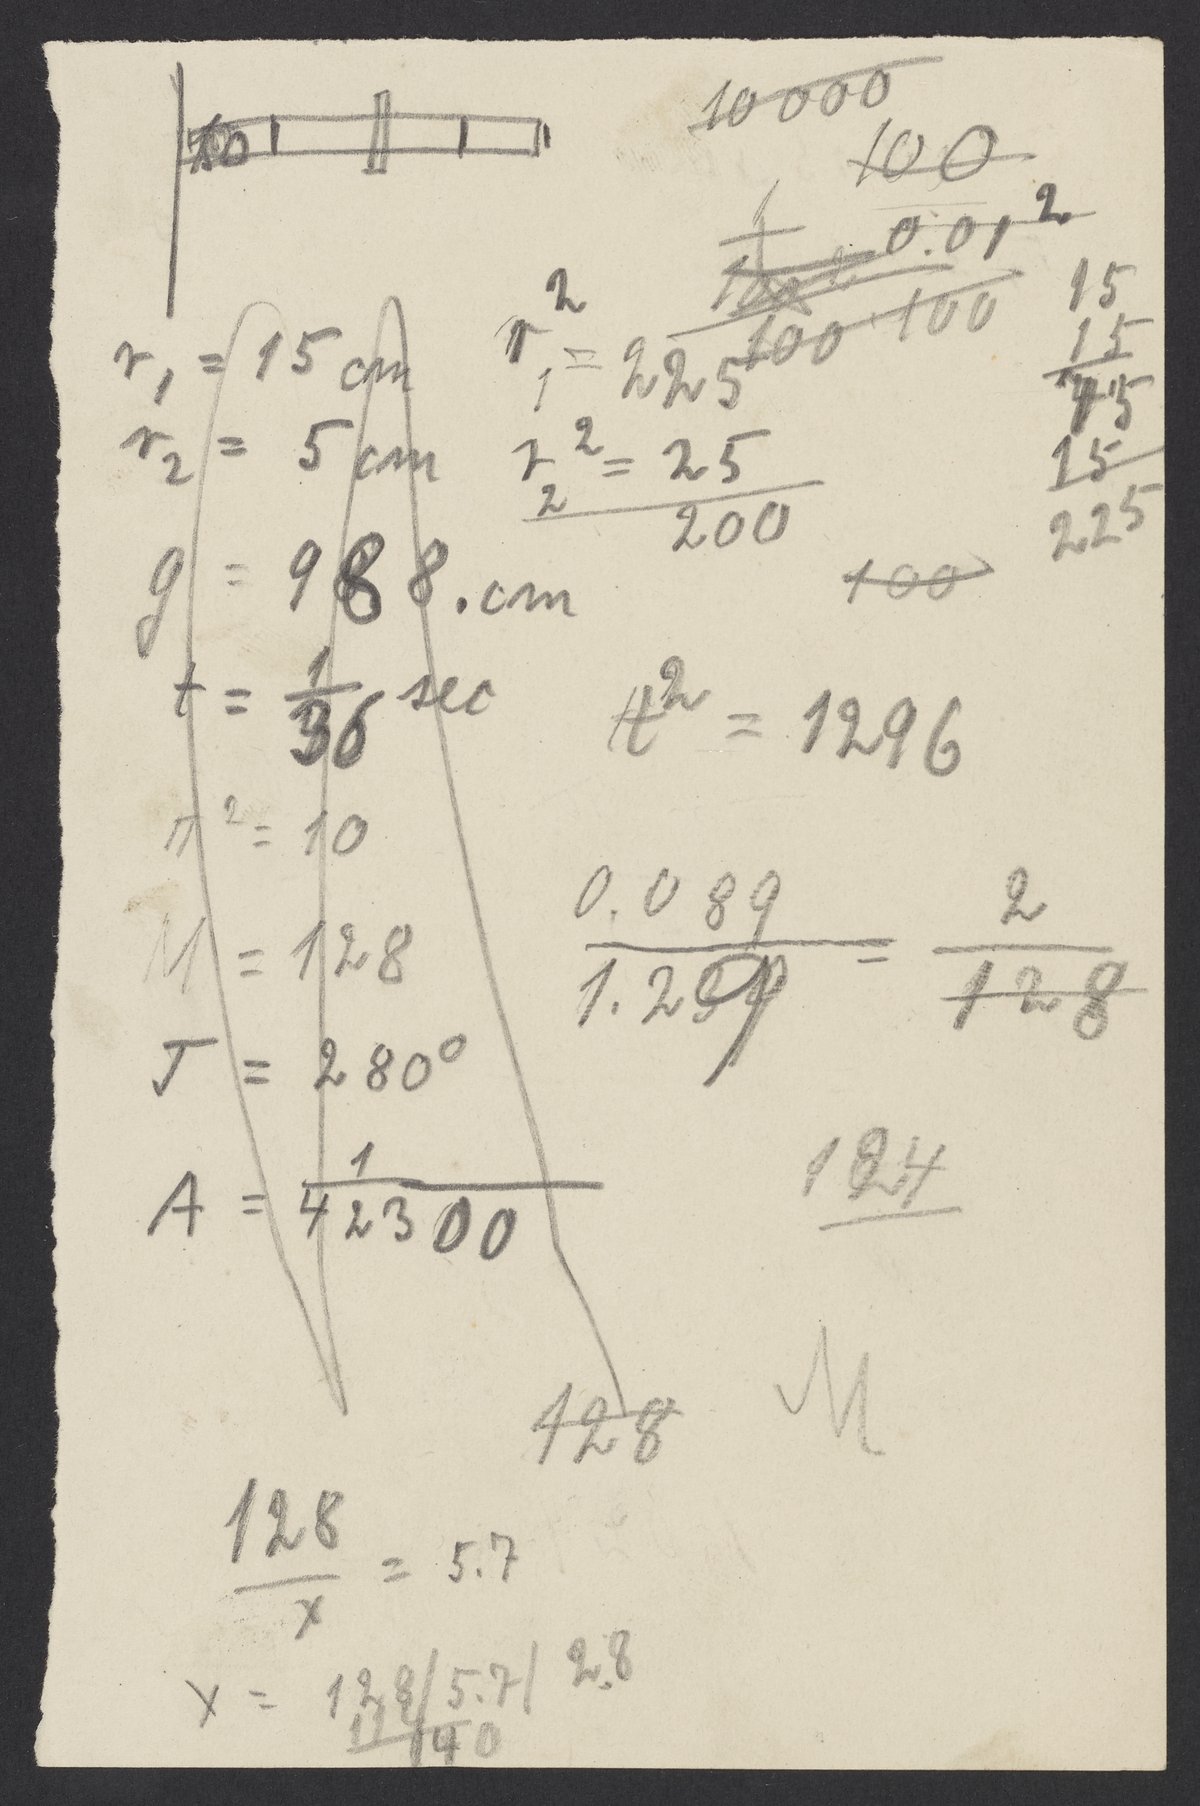 10000
100
0.01²
1
100 · 100
r₁ = 15 cm
r₂ = 5 cm
g = 988.cm
t = 1/36 sec
π² = 10
M = 128
T = 280°
A = 1/42300
r₁² = 225
r₂² = 25
200
15
15
75
15
225
100
t² = 1296
0.089/1.29 = 2/128
124
128
M
128/x = 5.7
x = 128/5.7/ 2.8
140